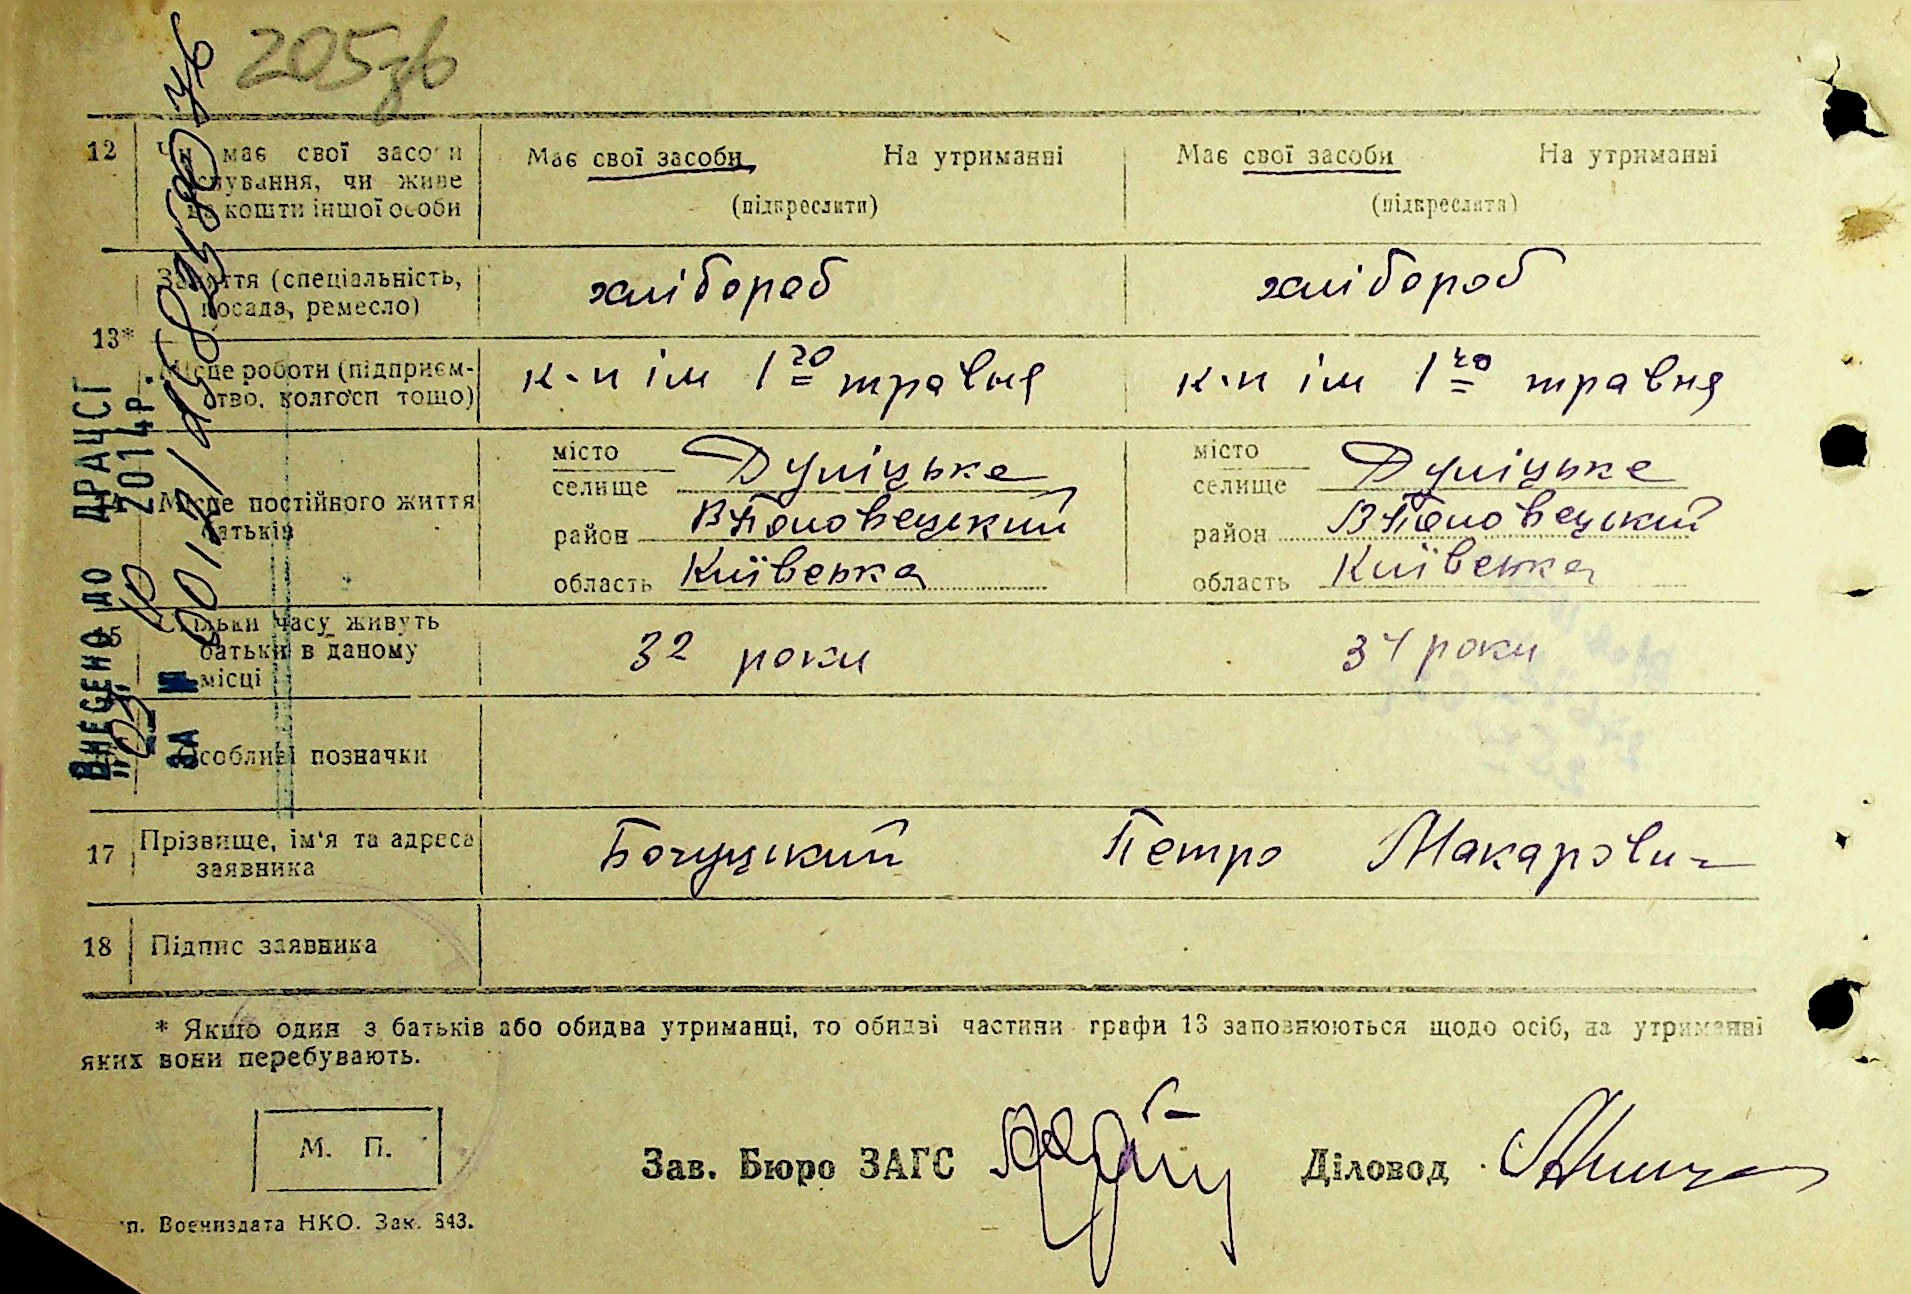 205зв
12 Чи має свої засоби Має свої засоби На утриманні Має свої засоби На утриманні
існування, чи живе
на кошти іншої особи (підкреслити) (підкреслити)
Заняття (спеціальність, хлібороб хлібороб
посада, ремесло)
13*
Місце роботи (підприєм- к-п ім 1го травня к-п ім 1го травня
ство, колгосп тощо)
місто Дуліцьке місто Дуліцьке
селище селище
Місце постійного життя район В Половецький район В Половецький
батьків
область Київська область Київська
15 Скільки часу живуть 32 роки 34 роки
батьки в даному
місці
Особливі позначки
17 Прізвище, ім'я та адреса Богуцький Петро Макарович
заявника
18 Підпис заявника
* Якщо один з батьків або обидва утриманці, то обидві частини графи 13 заповнюються щодо осіб, на утриманні
яких вони перебувають.
М. П.
Зав. Бюро ЗАГС Діловод
п. Воениздата НКО. Зак. 843.
Внесено до ДРАЦСГ
10 2014р.
за №